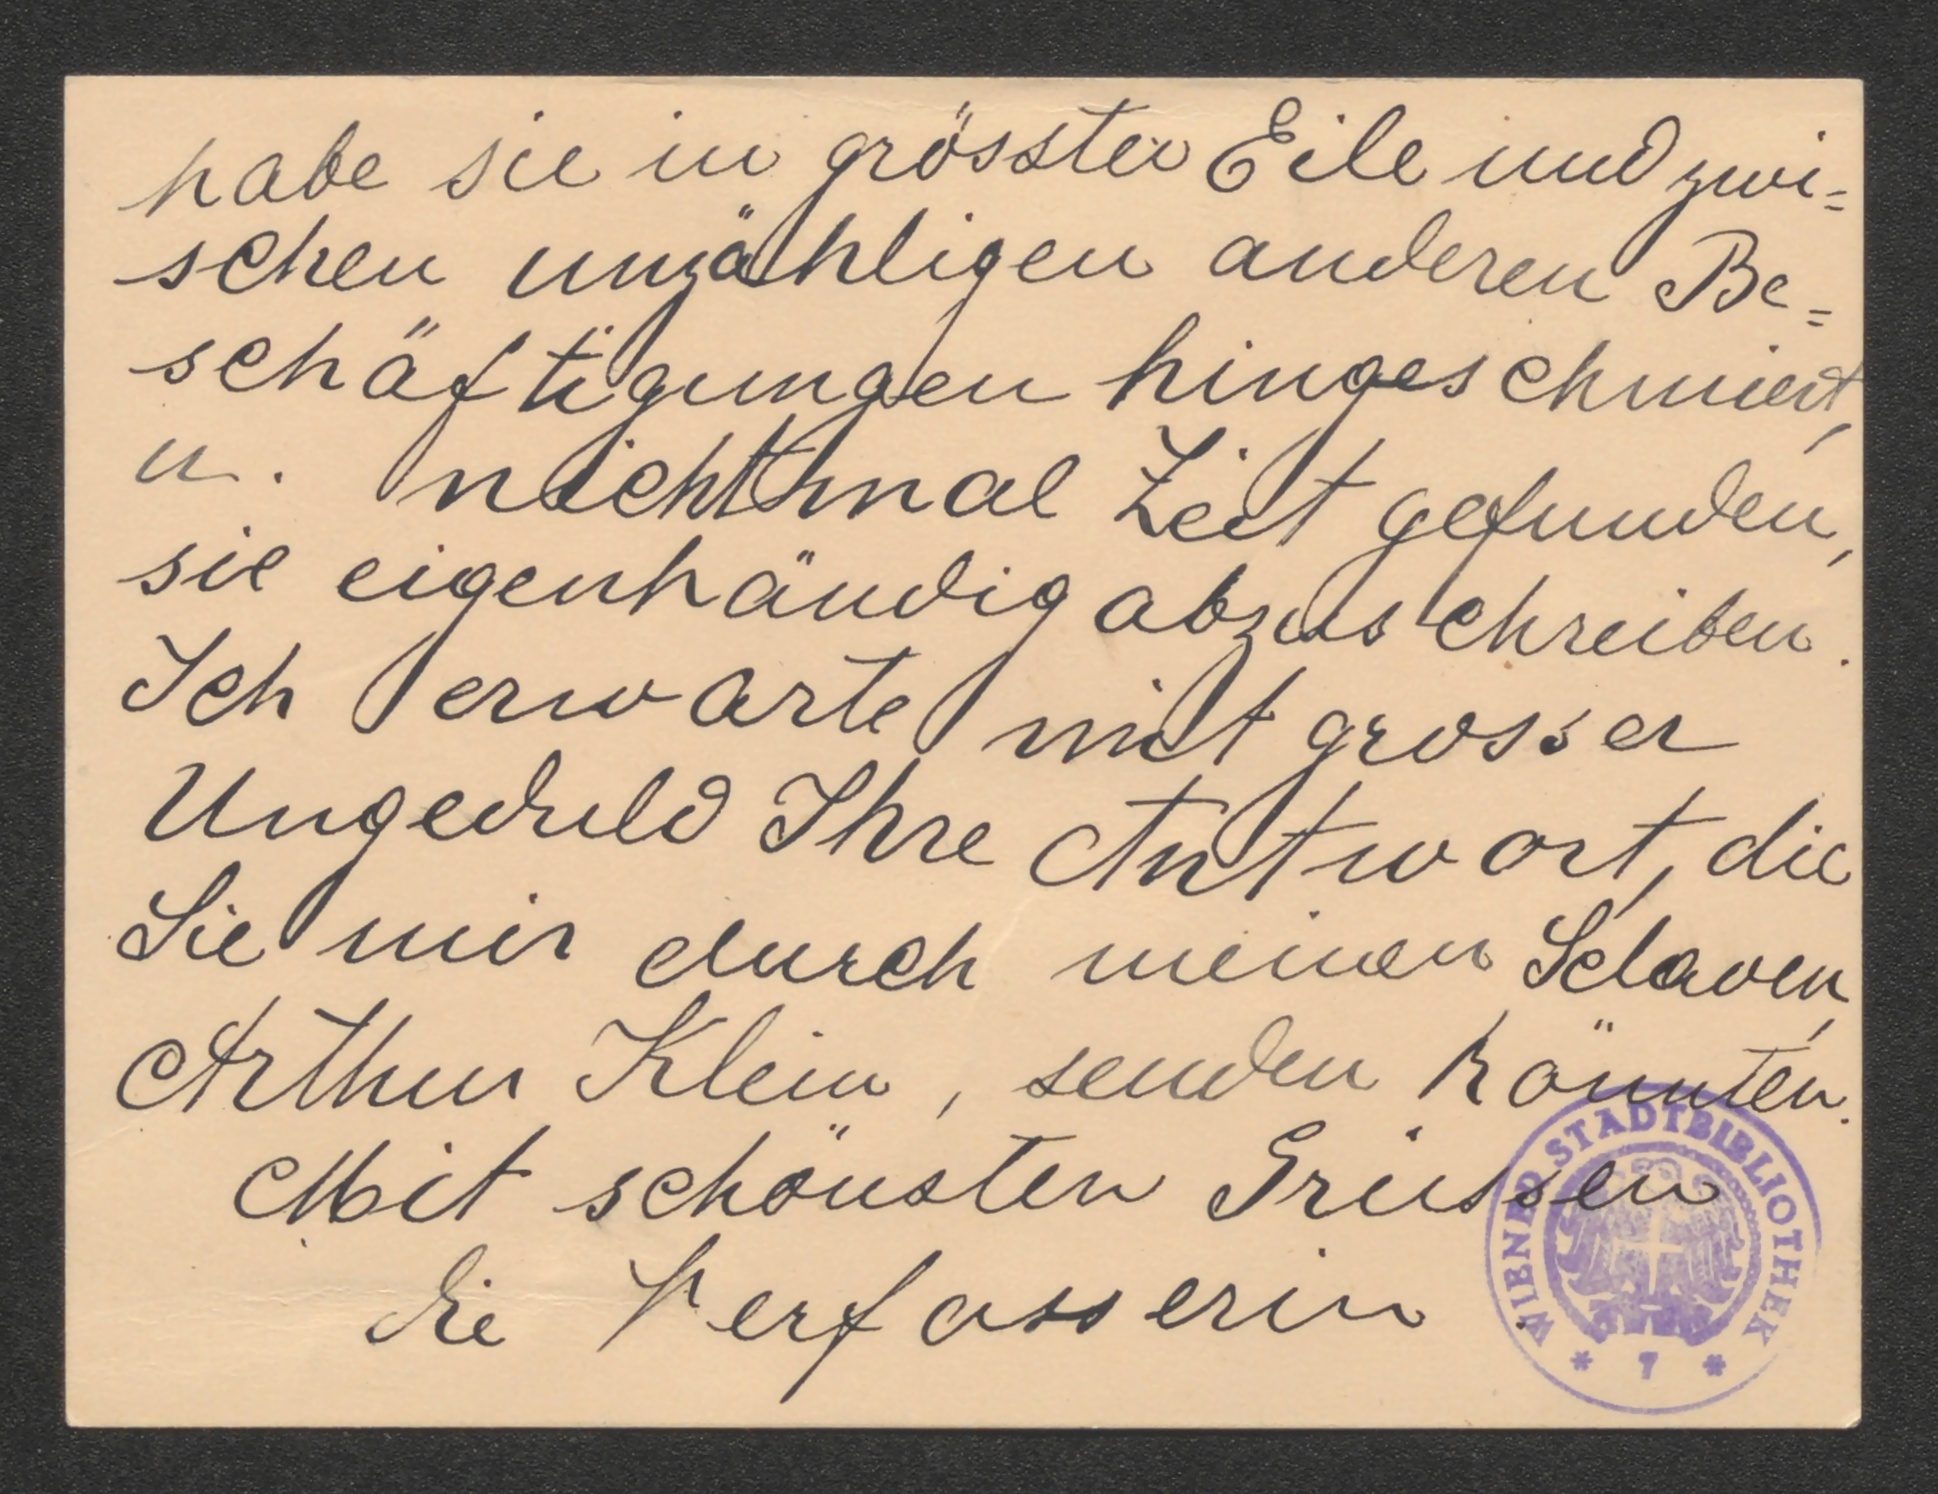 habe sie in grösster Eile und zwi=
schen unzähligen anderen Be=
schäftigungen hingeschmiert,
u. nichtmal Zeit gefunden,
sie eigenhändig abzuschreiben.
Ich erwarte mit grosser
Ungeduld Ihre Antwort, die
Sie mir durch meinen Sclaven,
Arthur Klein, senden könnten.
Mit schönsten Grüssen
die Verfasserin
WIENER STADTBIBLIOTHEK
* 7 *